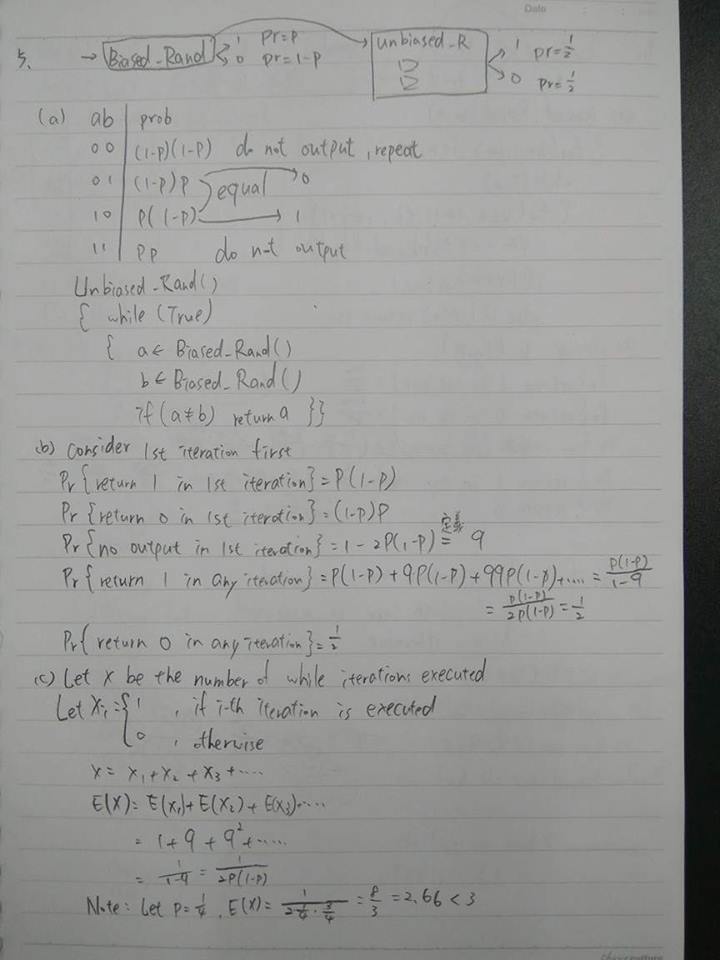 Date
5. → Biased_Rand 1 Pr=P unbiased_R 1 pr=1/2
0 pr=1-P 0 pr=1/2
(a) ab prob
00 (1-P)(1-P) do not output, repeat
01 (1-P)P equal → 0
10 P(1-P) → 1
11 PP do not output
Unbiased_Rand()
{ while (True)
{ a ← Biased_Rand()
b ← Biased_Rand()
if (a≠b) return a }}
(b) Consider 1st iteration first
Pr{return 1 in 1st iteration} = P(1-P)
Pr{return 0 in 1st iteration} = (1-P)P
Pr{no output in 1st iteration} = 1-2P(1-P) 定義= q
Pr{return 1 in any iteration} = P(1-P) + qP(1-P) + qqP(1-P) + .... = P(1-P)/1-q
= P(1-P)/2P(1-P) = 1/2
Pr{return 0 in any iteration} = 1/2
(c) Let X be the number of while iterations executed
Let Xi = { 1 , if i-th iteration is executed
0 , otherwise
X = X1 + X2 + X3 + ....
E(X) = E(X1) + E(X2) + E(X3)+....
= 1 + q + q² + .....
= 1/1-q = 1/2P(1-P)
Note: Let P=1/4, E(X) = 1/2·1/4·3/4 = 8/3 = 2.66 < 3